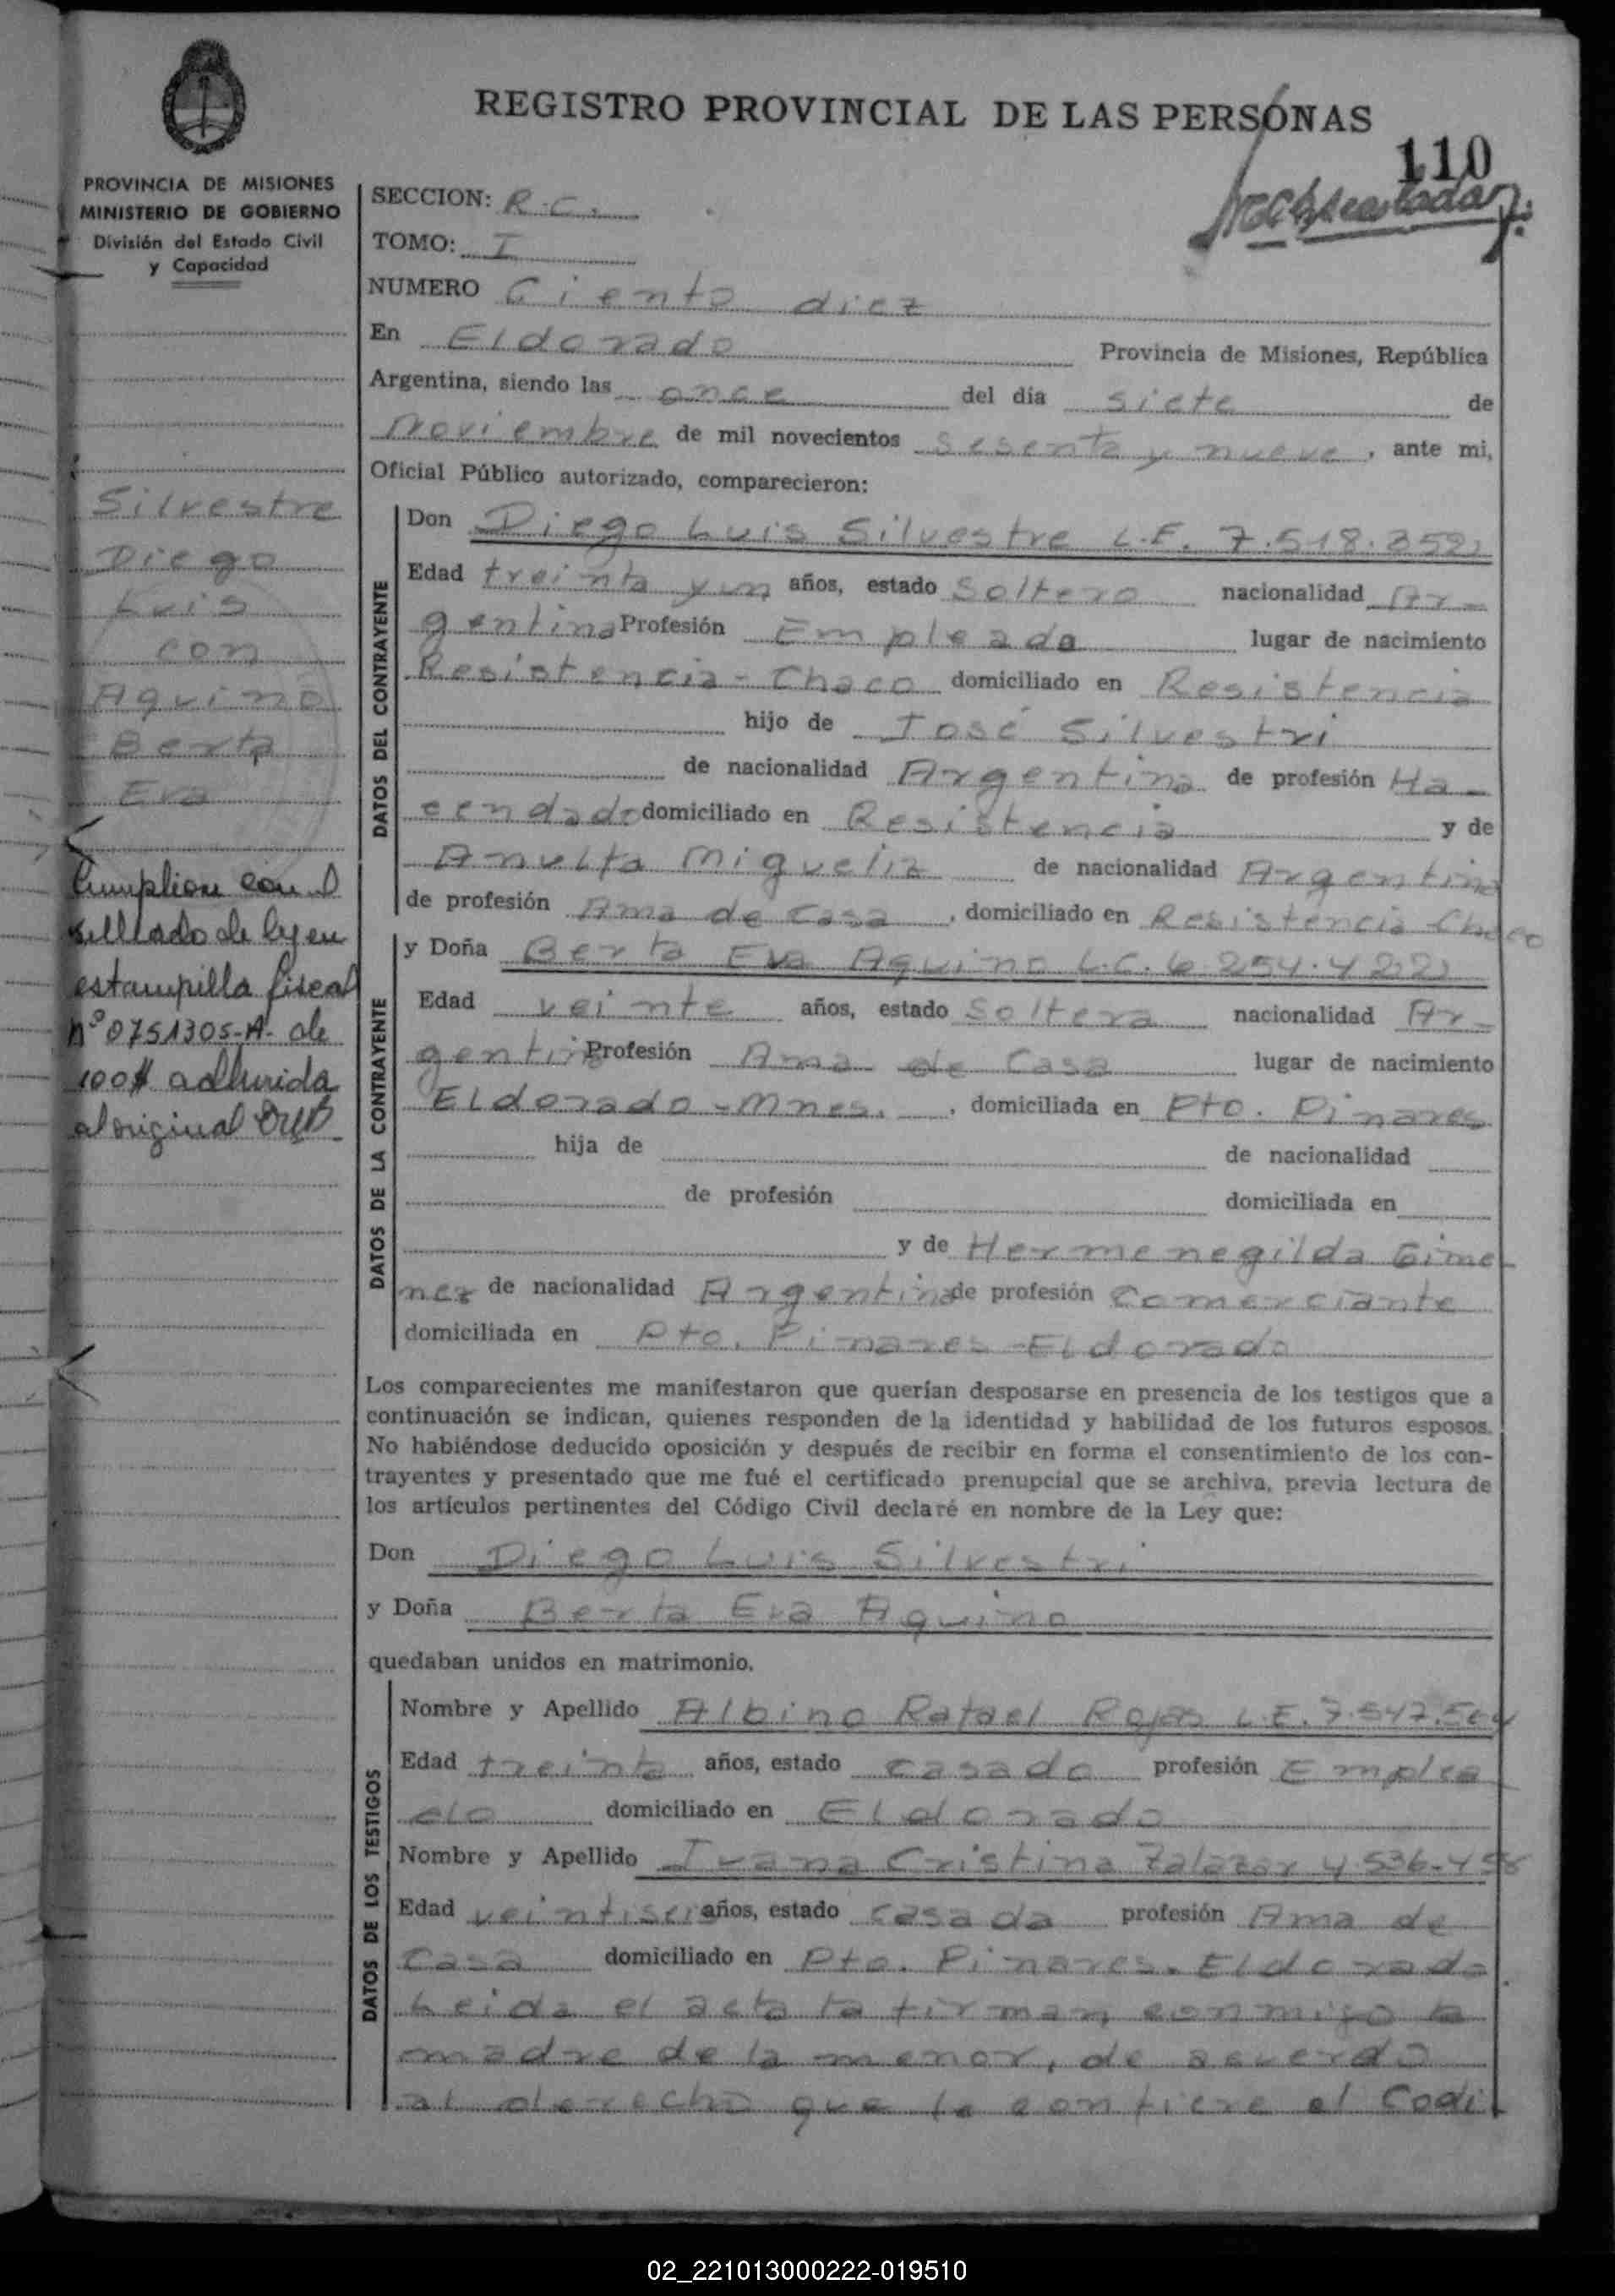 REGISTRO PROVINCIAL DE LAS PERSONAS
110
PROVINCIA DE MISIONES
MINISTERIO DE GOBIERNO
División del Estado Civil
y Capacidad
SECCION: R.C.
TOMO: I
NUMERO Ciento diez
En Eldorado Provincia de Misiones, República
Argentina, siendo las once del día siete de
Noviembre de mil novecientos sesenta y nueve, ante mi,
Oficial Público autorizado, comparecieron:
Silvestre
Diego
Luis
con
Aquino
Berta
Eva
Cumplion con
sellado de ley en
estampilla fiscal
Nº 0751305-A- de
100$ adherida
al original
DATOS DEL CONTRAYENTE
Don Diego Luis Silvestre L.E. 7.518.352
Edad treinta y un años, estado Soltero nacionalidad Ar-
gentina Profesión Empleado lugar de nacimiento
Resistencia - Chaco domiciliado en Resistencia
hijo de José Silvestri
de nacionalidad Argentina de profesión Ha-
cendado domiciliado en Resistencia y de
Anulfa Migueliz de nacionalidad Argentina
de profesión Ama de Casa, domiciliado en Resistencia Chaco
DATOS DE LA CONTRAYENTE
y Doña Berta Eva Aquino L.C. 6.254.422
Edad veinte años, estado Soltera nacionalidad Ar-
gentina Profesión Ama de Casa lugar de nacimiento
Eldorado - Mnes., domiciliada en Pto. Pinares
hija de de nacionalidad
de profesión domiciliada en
y de Hermenegilda Gime
nez de nacionalidad Argentina de profesión Comerciante
domiciliada en Pto. Pinares - Eldorado
Los comparecientes me manifestaron que querían desposarse en presencia de los testigos que a
continuación se indican, quienes responden de la identidad y habilidad de los futuros esposos.
No habiéndose deducido oposición y después de recibir en forma el consentimiento de los con-
trayentes y presentado que me fué el certificado prenupcial que se archiva, previa lectura de
los artículos pertinentes del Código Civil declaré en nombre de la Ley que:
Don Diego Luis Silvestri
y Doña Berta Eva Aquino
quedaban unidos en matrimonio.
DATOS DE LOS TESTIGOS
Nombre y Apellido Albino Rafael Rojas L.E. 7.547.564
Edad treinta años, estado casado profesión Emplea
do domiciliado en Eldorado
Nombre y Apellido Ivana Cristina Zalazar 4.536-458
Edad veintiseis años, estado casada profesión Ama de
Casa domiciliado en Pto. Pinares. Eldorado
Leida el acta la firman conmigo la
madre de la menor, de acuerdo
al derecho que le confiere el Codi
02_221013000222-019510